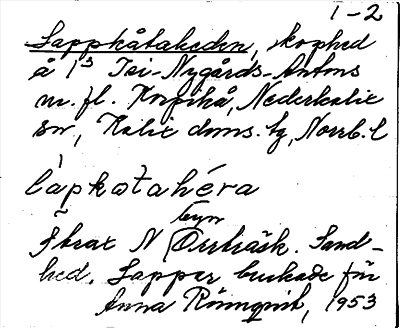 1-2
Lappkåtaheden, skoghed
å 1³ Isi-Nygårds-Antons
m. fl. Korpikå, Nederkalix
sn, Kalix doms. tg, Norrb. l
làpkɷtahéra
byn
N Orrträsk. Sand-
hed. Lappar brukade för
Anna Rönnqvist, 1953